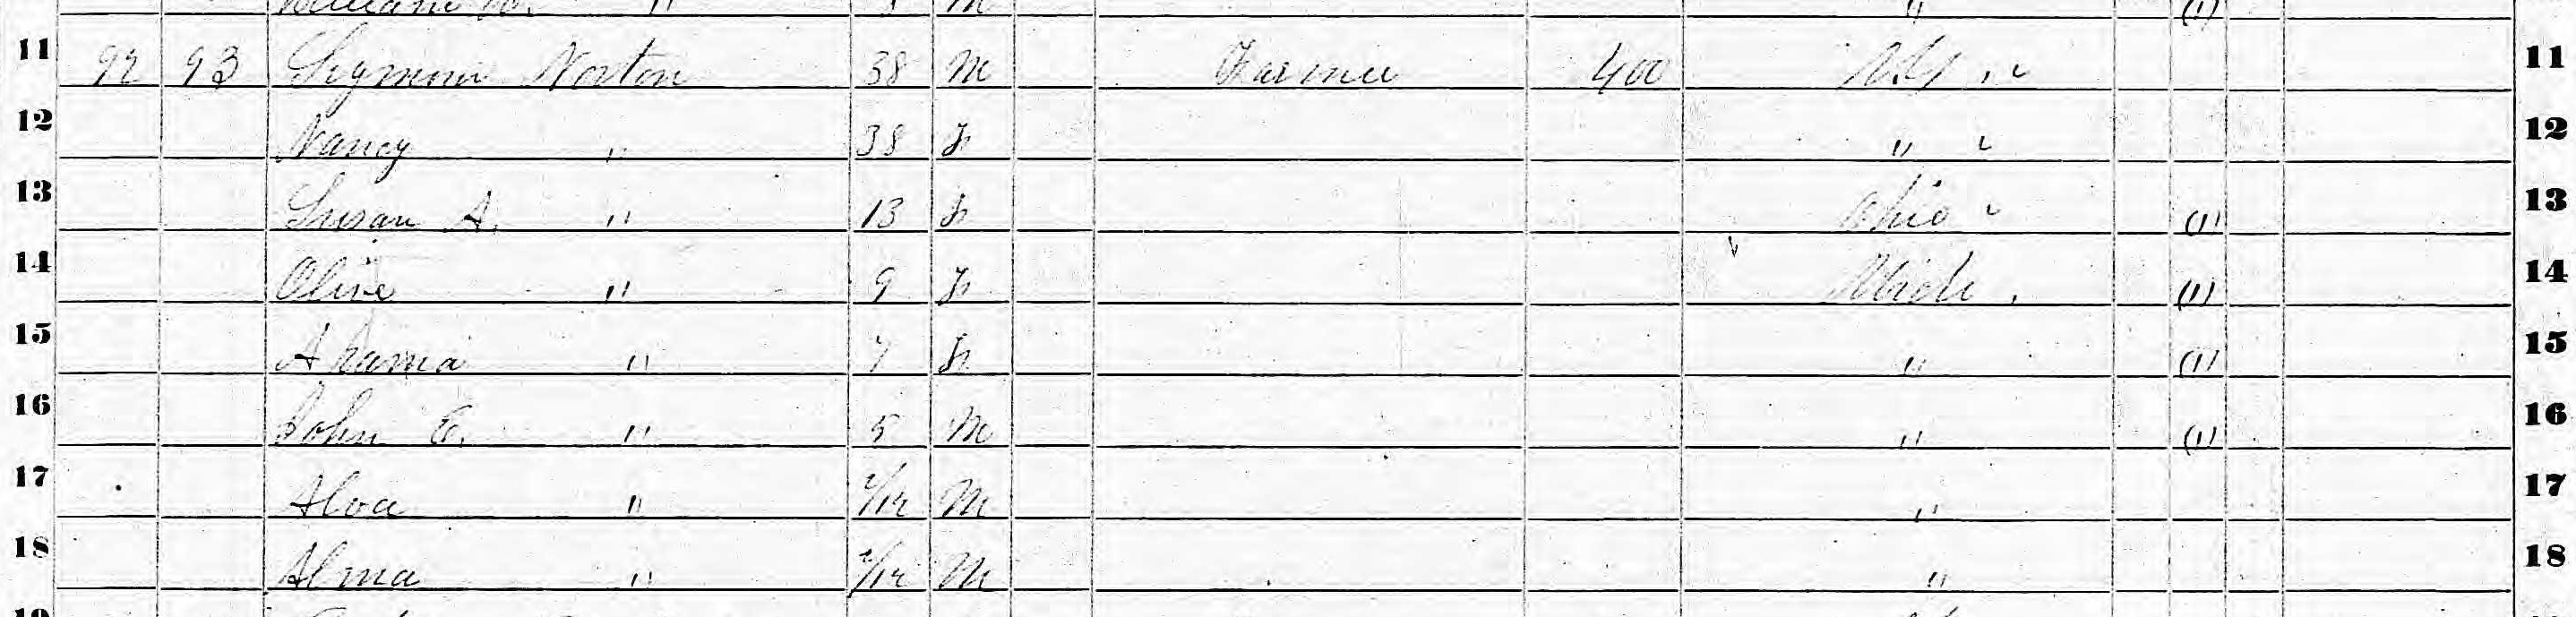 11 92 93 Seymour Norton 38 M Farmer 400 N.Y. 11
12 Nancy " 38 F " 12
13 Susan A. " 13 F Ohio (1) 13
14 Olive " 9 F Mich. (1) 14
15 " 7 F " (1) 15
16 John E. " 5 M " (1) 16
17 Alva " 2/12 M " 17
18 Alma " 2/12 M " 18